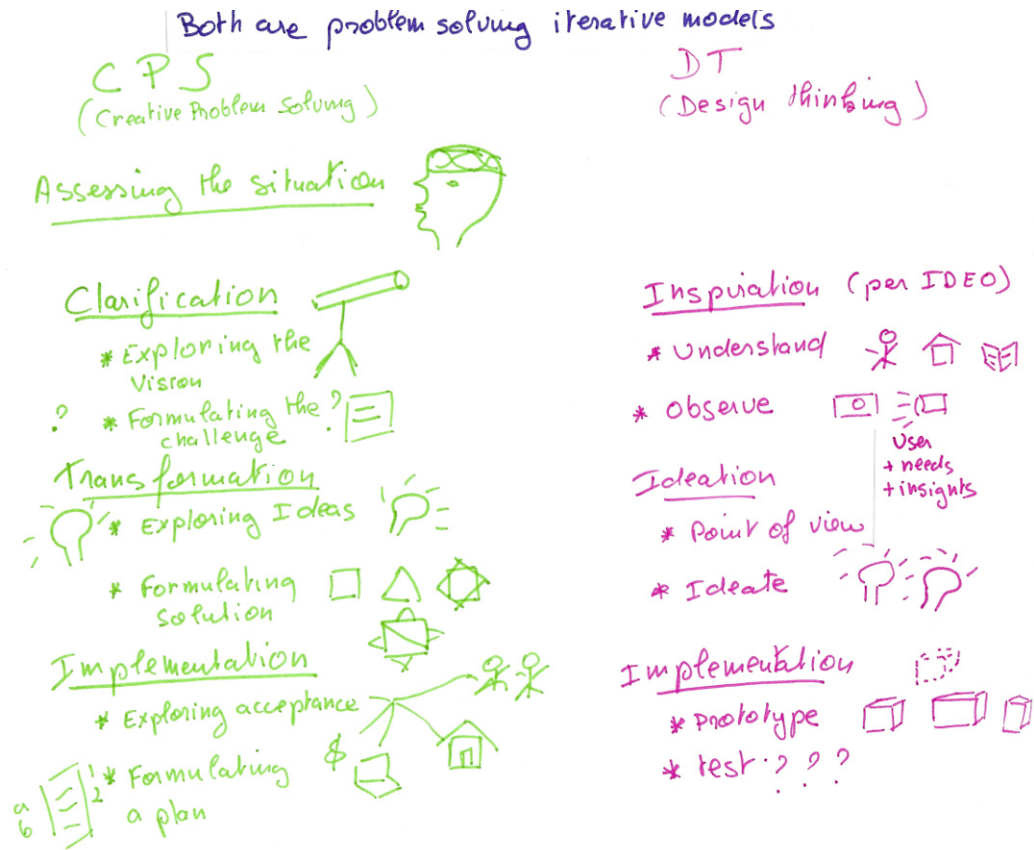 Both are problem solving iterative models
CPS
(Creative Problem Solving)
Assessing the situation
Clarification
* Exploring the
Vision
? * Formulating the ?
challenge
Transformation
* Exploring Ideas
* Formulating
solution
Implementation
* Exploring acceptance
$
* Formulating
a plan
1
2
a
b
DT
(Design thinking)
Inspiration (per IDEO)
* Understand
* Observe
User
+ needs
+ insights
Ideation
* Point of view
* Ideate
Implementation
* Prototype
* test ? ? ?